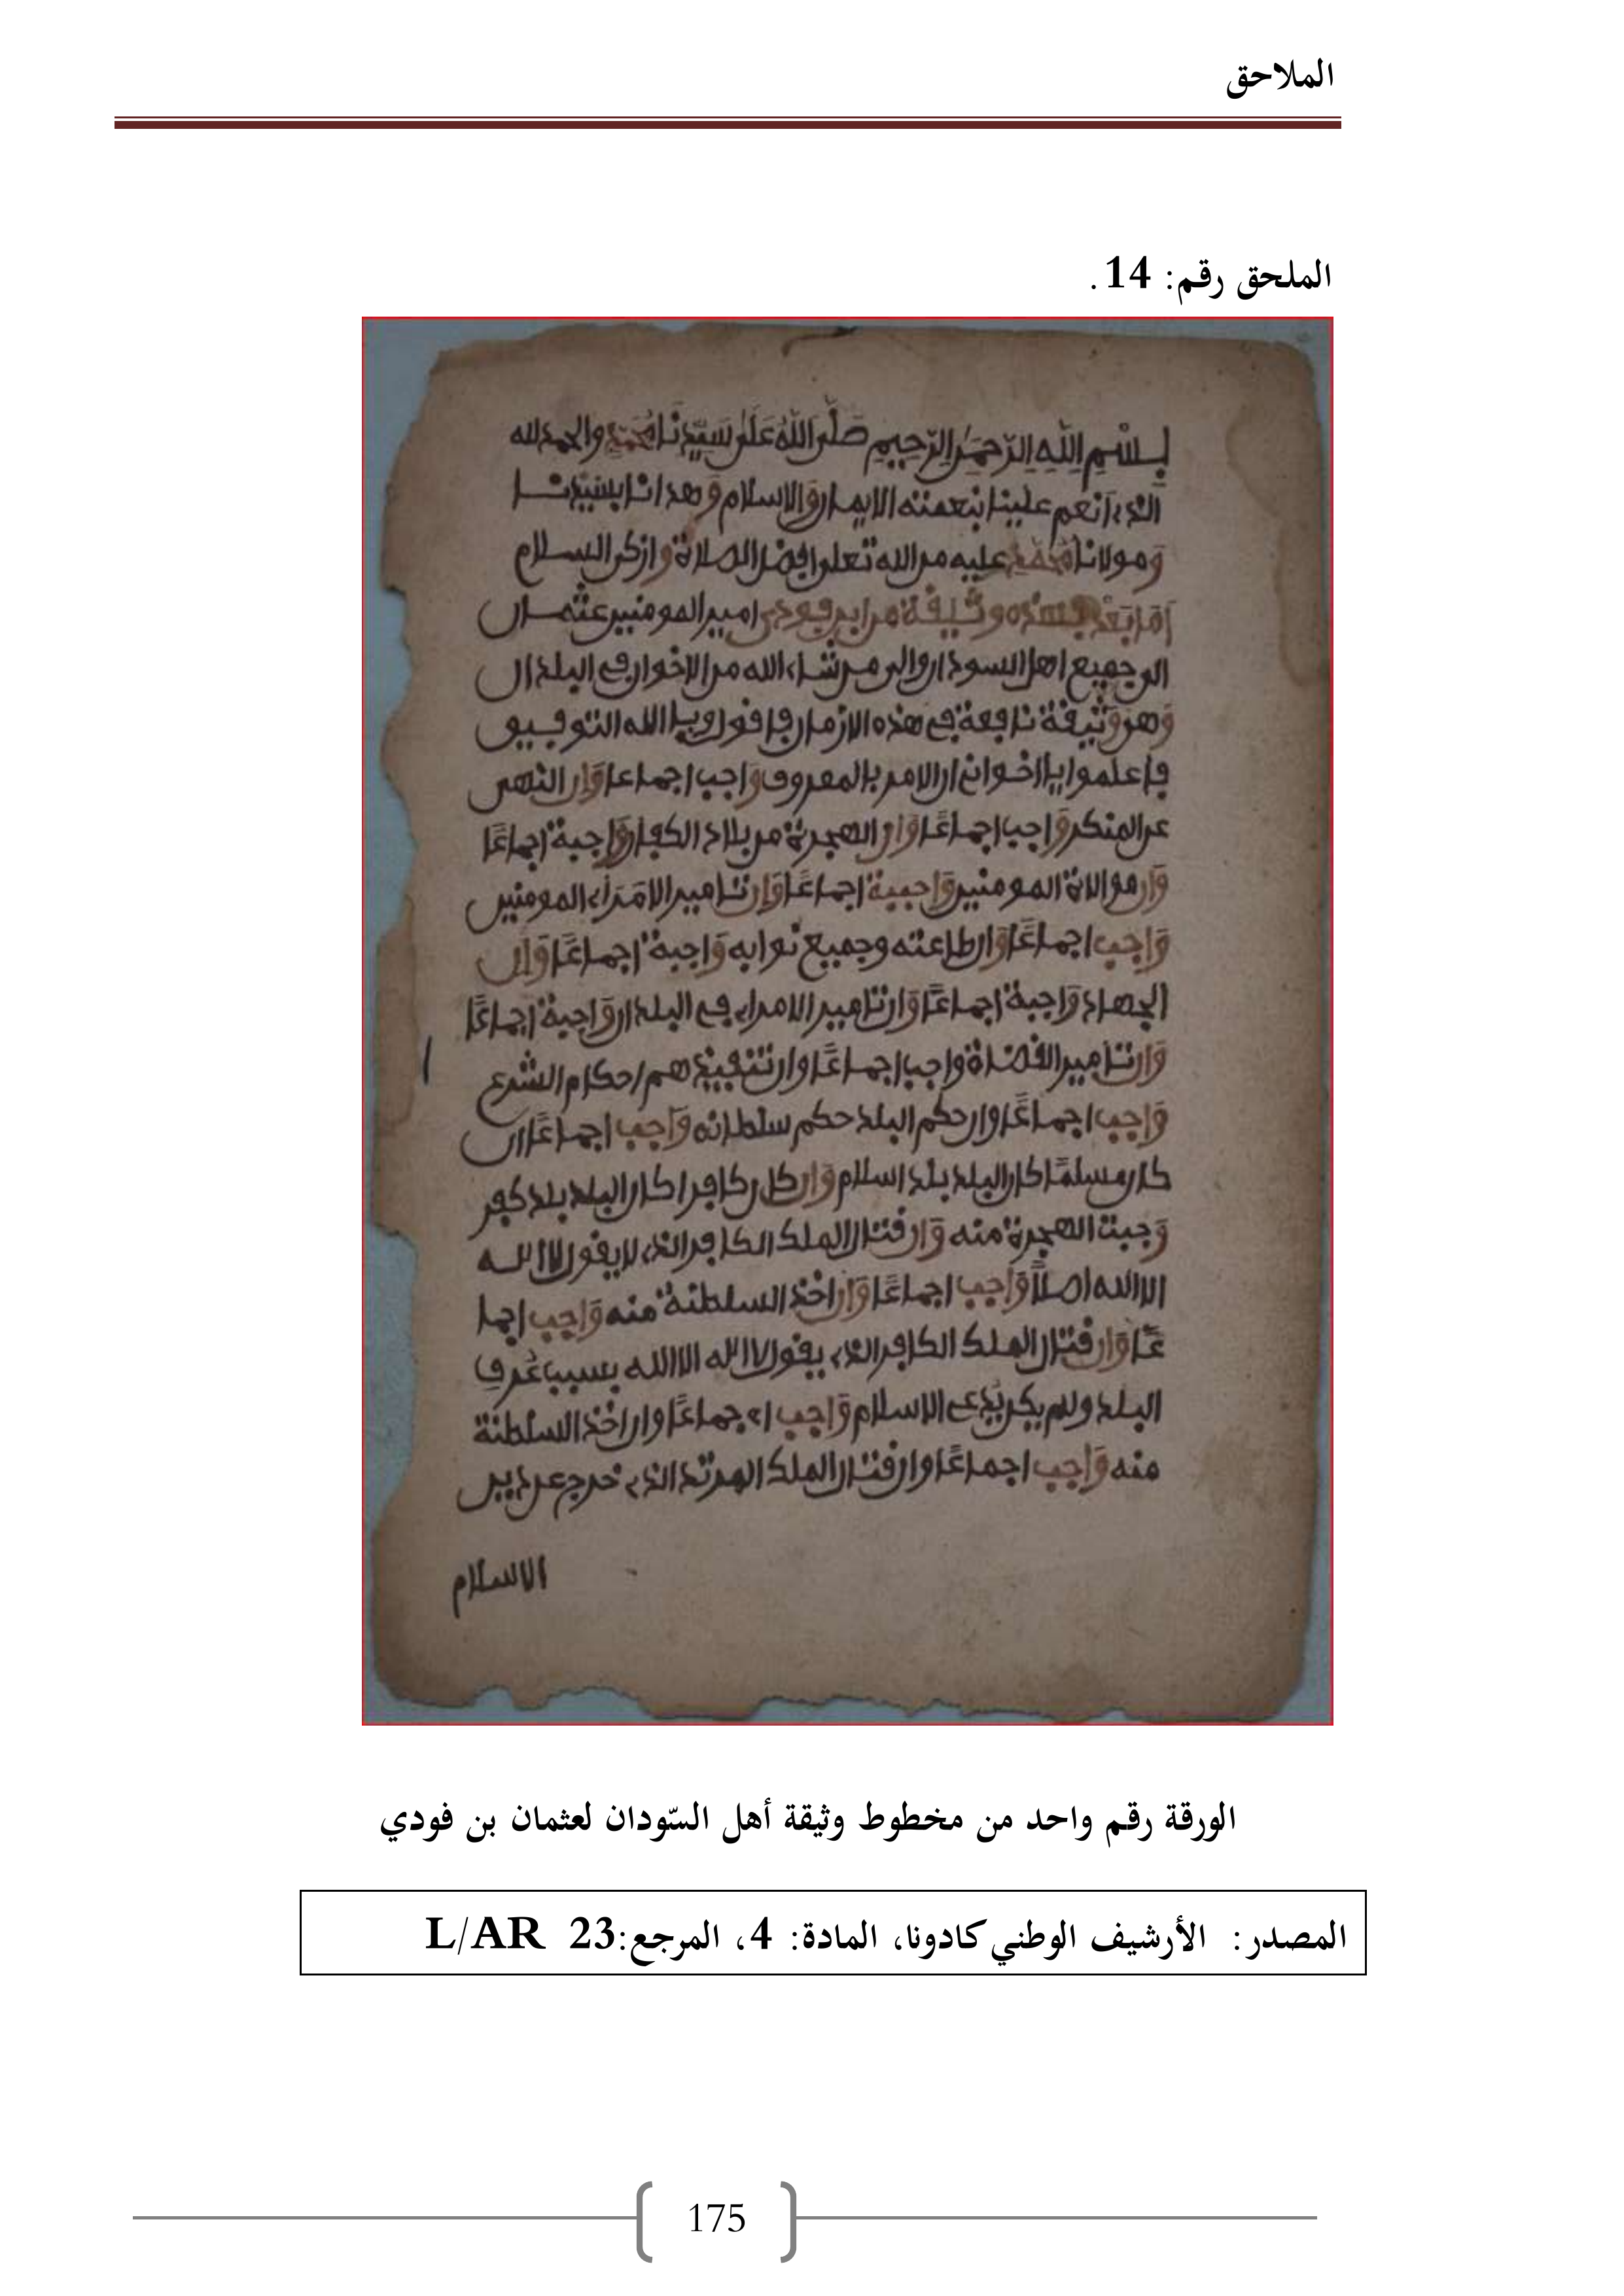 الملاحق
الملحق رقم: 14.
بِسْمِ اللَّهِ الرَّحْمَٰنِ الرَّحِيمِ صَلَّى اللَّهُ عَلَىٰ سَيِّدِنَا مُحَمَّدٍ والحمد لله
الذي أنعم علينا بنعمته الايمان والاسلام وهدانا بسيدنا
ومولانا محمد عليه من الله تعلى افضل الصلاة وازكى السلام
أما بعد فهذه وثيقة من ابن فودي امير المومنين عثمان
الى جميع اهل السودان والى من شاء الله من الاخوان في البلدان
وهي وثيقة نافعة في هذه الازمان فاقول وبالله التوفيق
فاعلموا يا اخواني ان الامر بالمعروف واجب اجماعا وان النهي
عن المنكر واجب اجماعًا وان الهجرة من بلاد الكفار واجبة اجماعًا
وان موالاة المومنين واجبة اجماعًا وان تامير الامراء المومنين
واجب اجماعًا وان طاعته وجميع نوابه واجبة اجماعًا وان
الجهاد واجبة اجماعًا وان تامير الامراء في البلدان واجبة اجماعًا
وان تامير القضاة واجب اجماعًا وان تنفيذهم احكام الشرع
واجب اجماعًا وان حكم البلد حكم سلطانه واجب اجماعًا ان
كان مسلمًا كان البلد بلد اسلام وان كان كافرا كان البلد بلد كفر
وجبت الهجرة منه وان قتال الملك الكافر الذي لا يقول لا اله
الا الله اصلًا واجب اجماعًا وان اخذ السلطنة منه واجب اجما
عًا وان قتال الملك الكافر الذي يقول لا اله الا الله بسبب عُرف
البلد ولم يكن يدعي الاسلام واجب اجماعًا وان اخذ السلطنة
منه واجب اجماعًا وان قتال الملك المرتد الذي خرج عن دين
الاسلام
الورقة رقم واحد من مخطوط وثيقة أهل السّودان لعثمان بن فودي
المصدر: الأرشيف الوطني كادونا، المادة: 4، المرجع:23 L/AR
175